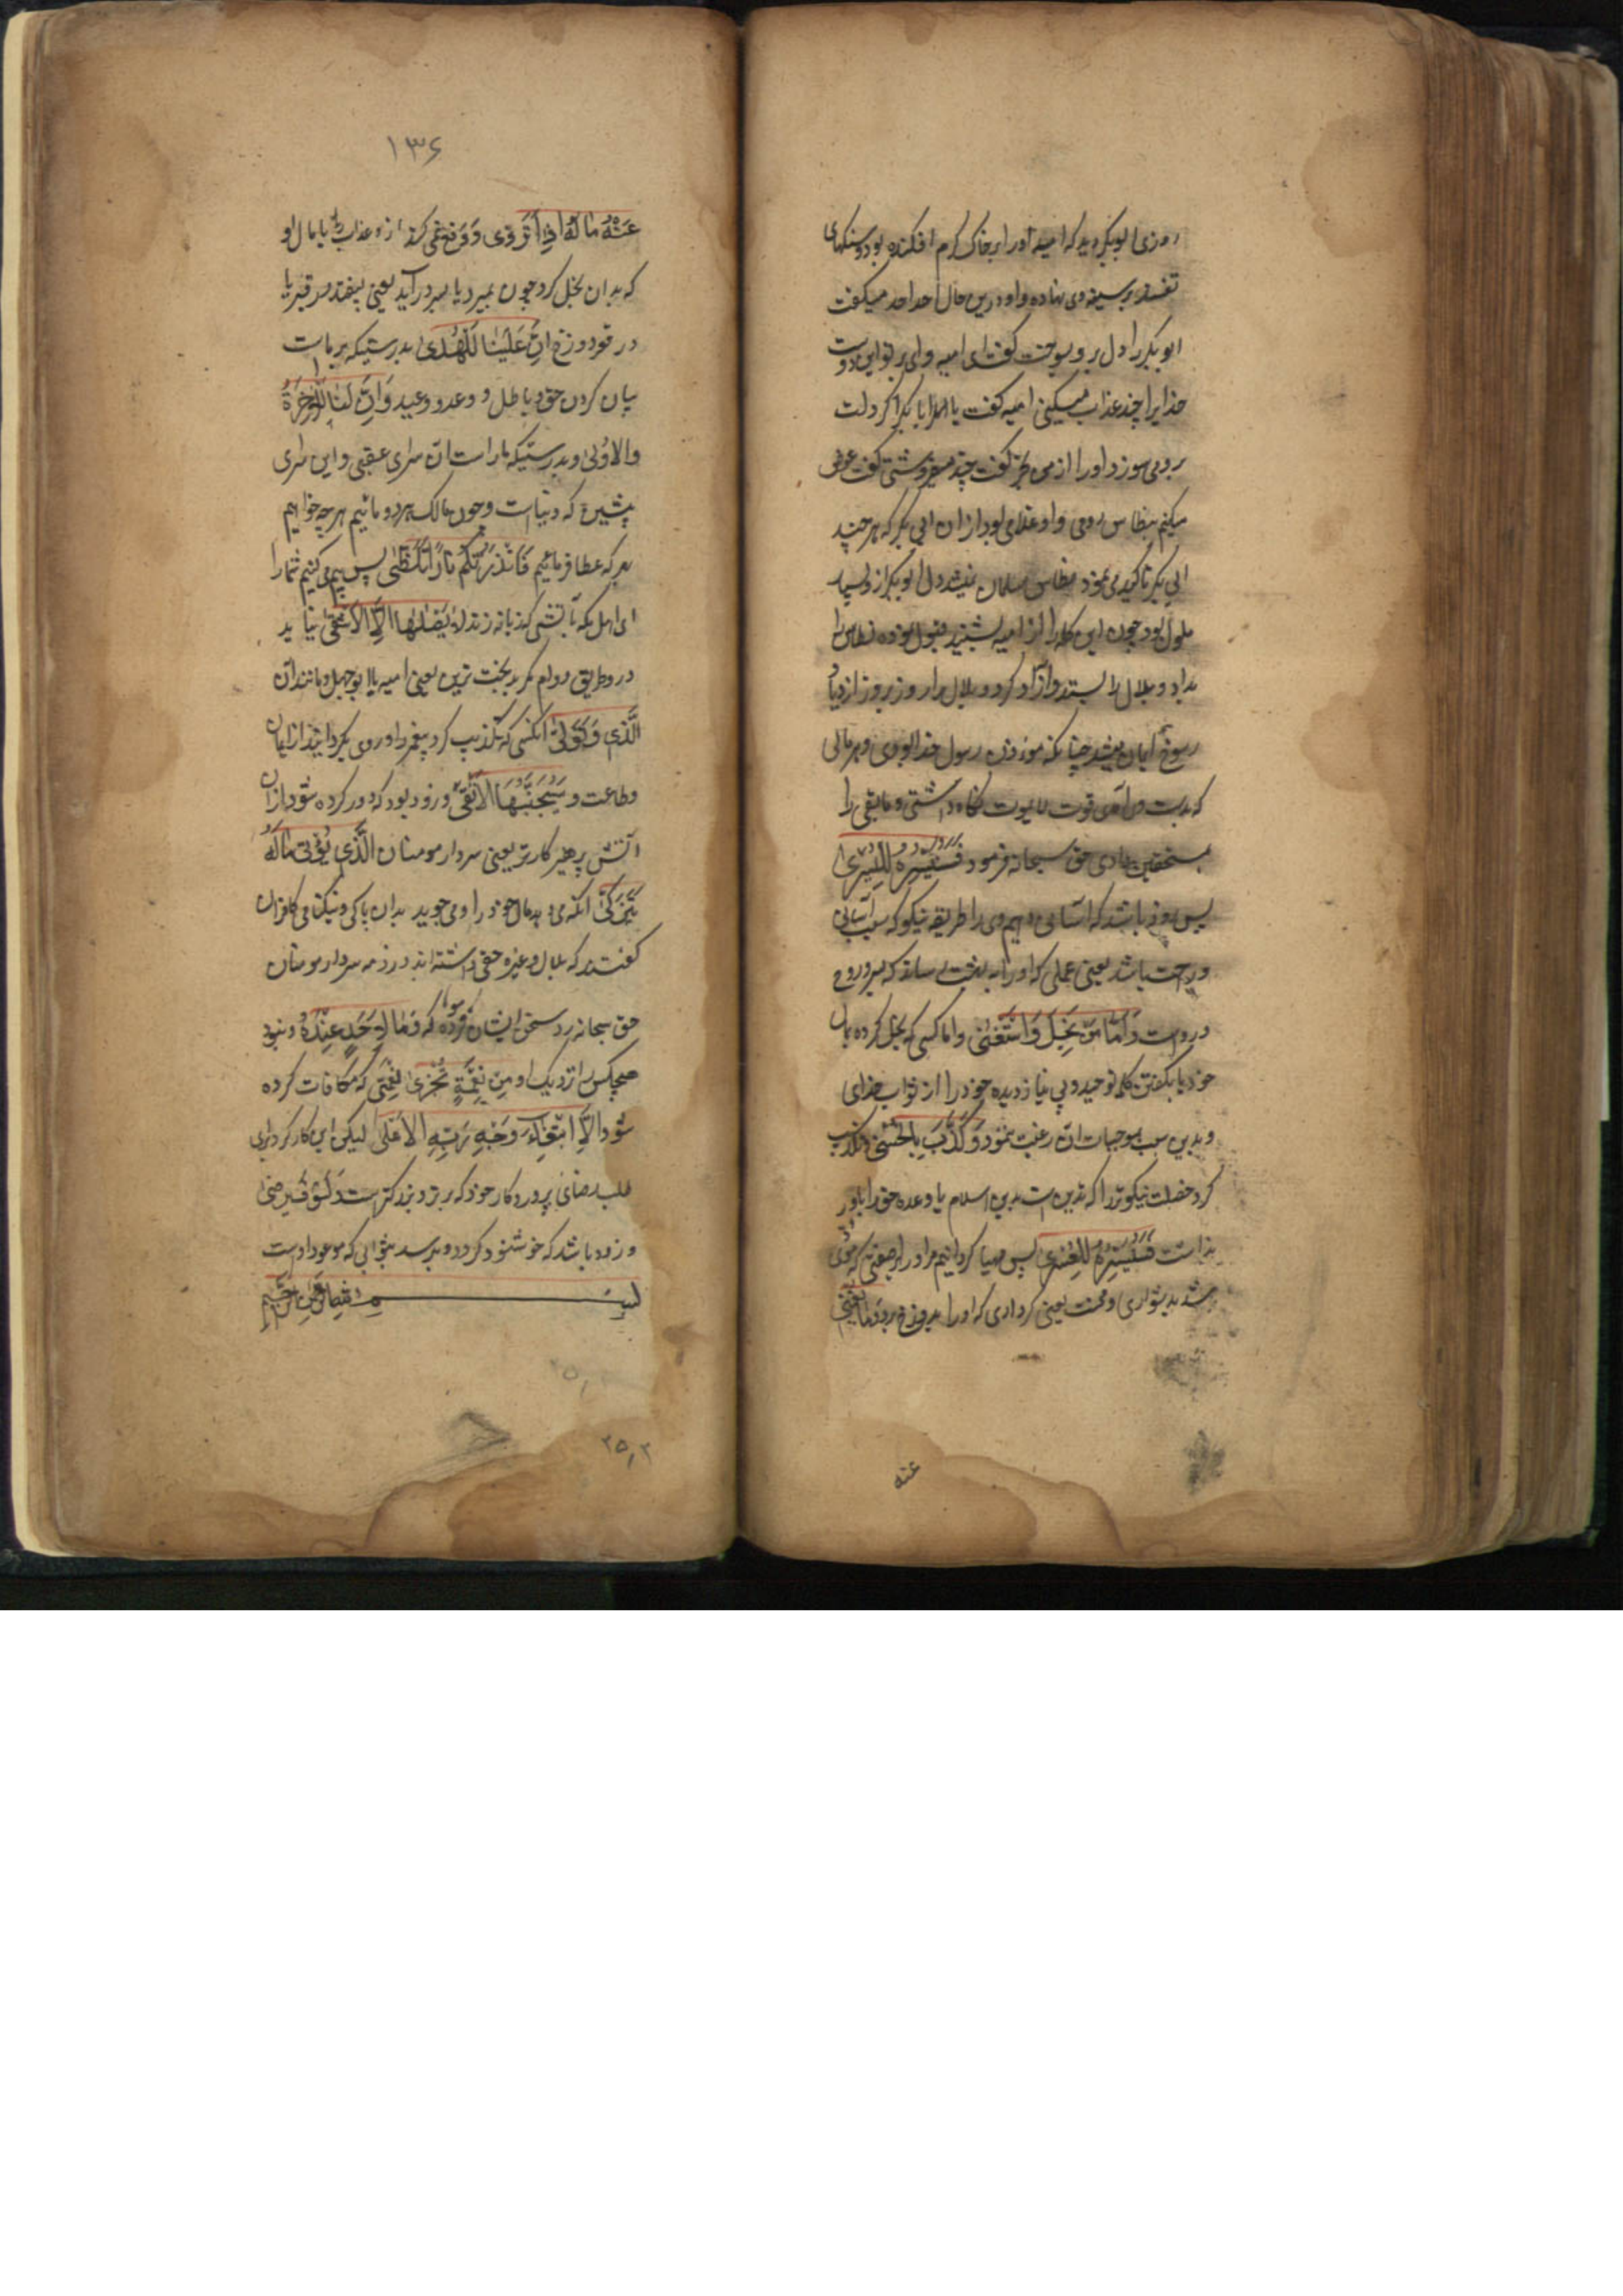 روزی ابوبکر دید که امیه او را بر خاک گرم افکنده بود و سنگهای
تفسیده بر سینه وی نهاده و او درین حال احد احد میکفت
ابوبکر را دل برو بسوخت کفت ای امیه وای بر تو این دوست
خدایرا چند عذاب میکینی امیه کفت یا ابابکر اکر دلت
برو می سوزد او را از من بخر کفت بچند میفروشی کفت عوض
میکنم بنطاس رومی و او غلامی بود از ان ابی بکر که هر چند
ابی بکر تاکید می نمود نطاس مسلمان نمیشد دل ابوبکر ازو بسیار
ملول بود چون این کلمه را از امیه بشنید قبول نموده نطاس را
بداد و بلال را بستد و آزاد کرد و بلال را روز بروز ازدیاد
رسوخ ایمان میشد چنانکه موذن رسول خدا بودی و هر مالی
که بدست در آمدی قوت لایموت نکاه داشتی و مابقی را
بمستحقین دادی حق سبحانه فرمود فَسَنُیَسِّرُهُ لِلْیُسْرَی
پس زود باشد که آسانی دهیم وی را طریقه نیکو که سبب آسانی
و راحت باشد یعنی عملی که او را به بهشت رساند که یسر و روح
دروست وَاَمَّا مَنْ بَخِلَ وَاسْتَغْنٰی و اما کسی که بخل کرده بمال
خود یا بکفتن کلمه توحید و بی نیاز دیده خود را از ثواب خدای
و بدین سبب بموجبات ان رغبت ننمود وَکَذَّبَ بِالْحُسْنٰی و تکذیب
کرد خصلت نیکوتر را که تدین است بدین اسلام یا وعده حق را باور
نداشت فَسَنُیَسِّرُهُ لِلْعُسْرٰی پس مهیا کردانیم مر او را بر صفتی که مودی
شد بدشواری و محنت یعنی کرداری که او را بدوزخ برد وَمَا یُغْنِی
عنه
۱۳۶
عَنْهُ مَالُهُ اِذَا تَرَدّٰی و دفع نمی کند ازو عذاب را یا مال او
که بدان بخل کرد چون بمیرد یا بسر در آید یعنی بیفتد در قبر یا
در قعر دوزخ اِنَّ عَلَیْنَا لَلْهُدٰی بدرستیکه بر ماست
بیان کردن حق و باطل و وعد و وعید وَاِنَّ لَنَا لَلْآخِرَةَ
والاُوْلٰی و بدرستیکه ما راست آن سرای عقبی و این سرای
پیشین که دنیا است و چون مالک هر دو مائیم هر چه خواهیم
بهر که عطا فرمائیم فَاَنْذَرْتُکُمْ نَارًا تَلَظّٰی پس بیم می کنیم شما را
ای اهل مکه بآتشی که زبانه زند لا یَصْلٰیهَا اِلَّا الْاَشْقَی نیاید
درو بطریق دوام مکر بدبخت ترین یعنی امیه یا ابوجهل و مانند آن
الَّذِی کَذَّبَ وَتَوَلّٰی انکسی که تکذیب کرد پیغمبر را و روی بکردانید از ایمان
و طاعت وَسَیُجَنَّبُهَا الْاَتْقَی و زود بود که دور کرده شود از ان
آتش پرهیزکارتر یعنی سردار مومنان الَّذِی یُؤْتِی مَالَهُ
یَتَزَکّٰی انکه می دهد مال خود را و می جوید بدان پاکی و نیکنامی کافران
کفتند که بلال و غیره حقی داشته اند در ذمه سردار مومنان
حق سبحانه رد سخن ایشان فرموده که وَمَا لِاَحَدٍ عِنْدَهُ و نبود
هیچکس را نزدیک او مِنْ نِعْمَةٍ تُجْزٰی نعمتی که مکافات کرده
شود اِلَّا ابْتِغَآءَ وَجْهِ رَبِّهِ الْاَعْلٰی لیکن این کار کرد برای
طلب رضای پروردکار خود که برتر و بزرکتر است وَلَسَوْفَ یَرْضٰی
و زود باشد که خوشنود کردد و برسد بثوابی که موعود اوست
بسم الله الرحمن الرحیم
۲۵۰۲